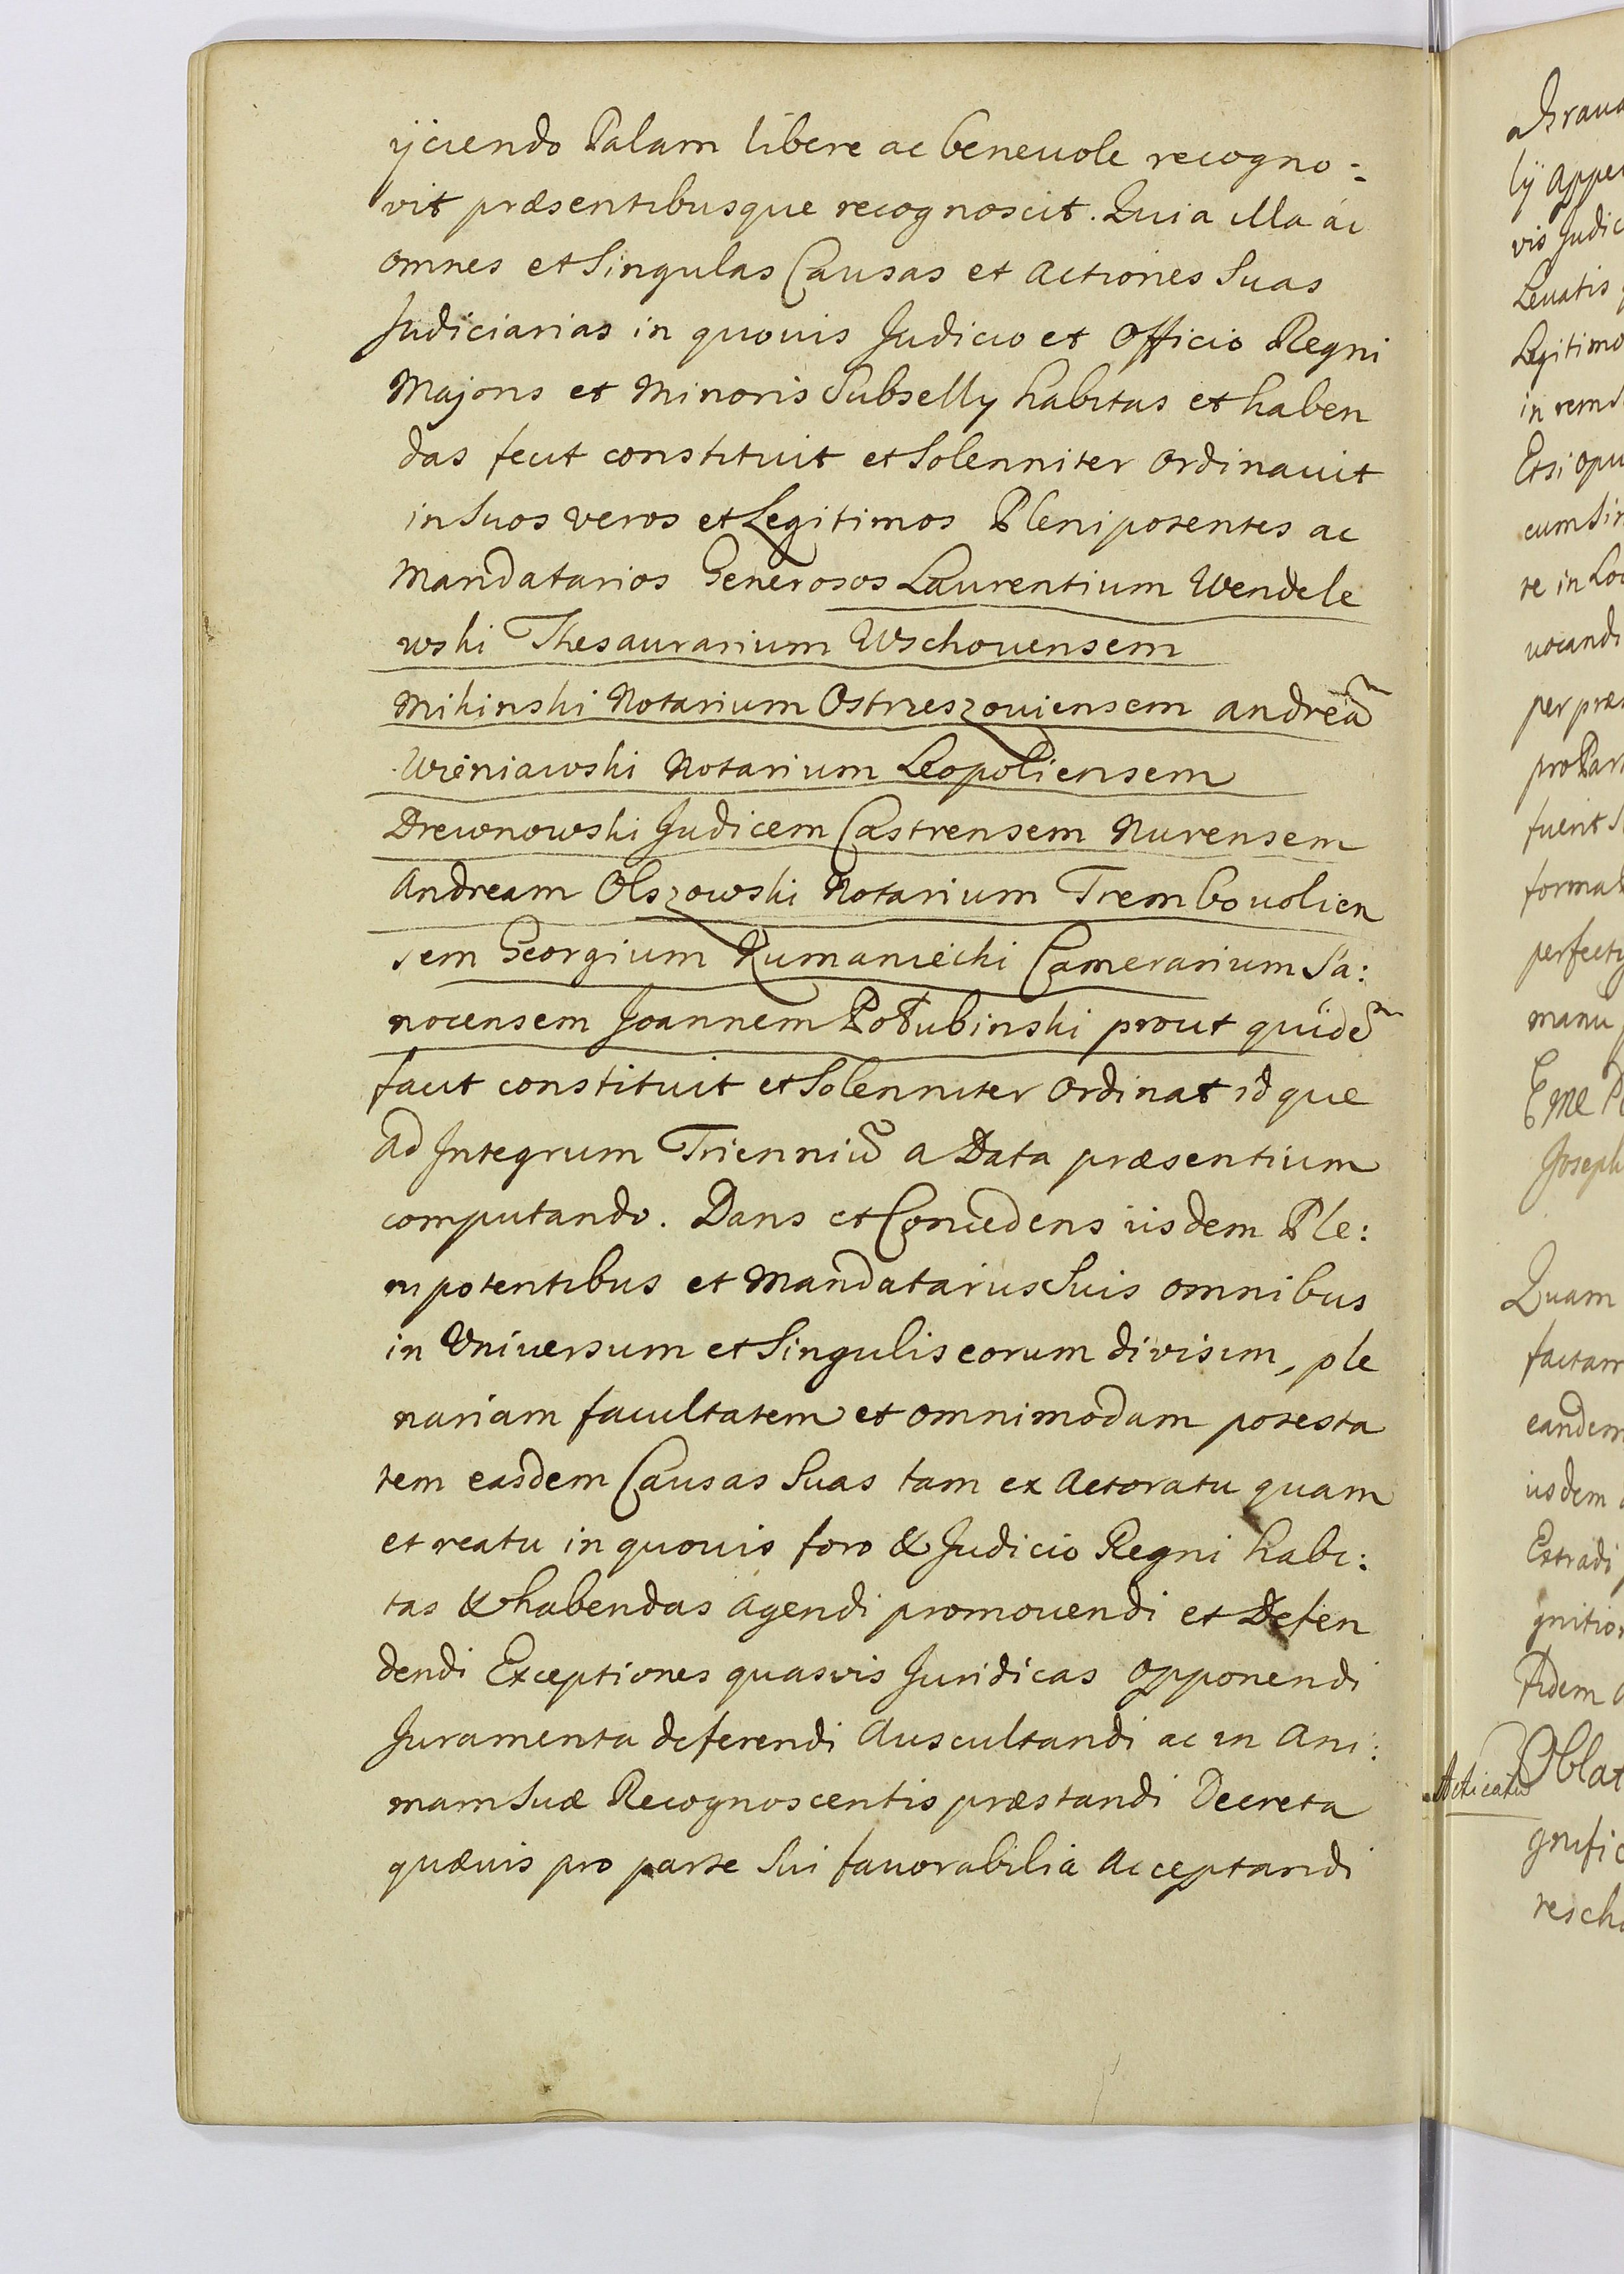 ijciendo Palam libere ac beneuole recogno:
vit præsentibusque recognoscit. Quia illa ac
omnes et Singulas Causas et actiones Suas
Judiciarias in quouis Judicio et officio Regni
Majoris et minoris Subsellÿ habitas et haben
das fecit constituit et Solenniter ordinauit
in Suos veros et Legitimos Plenipotentes ac
mandatarios Generosos Laurentium Wendele
wski Thesaurarium Wschouensem
Mikinski Notarium Ostrzeszouiensem andreã
Wieniawski Notarium Leopoliensem
Drewnowski Judicem Castrensem Nurensem
Andream Olszowski Notarium Trembouolien
sem Georgium Rumaniecki Camerarium Sa:
nocensem Joannem prout quidẽ
facit constituit et Solenniter ordinat idque
ad Integrum Trienniũ a Data præsentium
computando. Dans et Concedens iisdem Ple:
nipotentibus et Mandatariis Suis omnibus
in Vniuersum et Singulis eorum divisim, ple
nariam facultatem et omnimodam potesta
tem easdem Causas Suas tam ex Actoratu quam
et reatu in quouis foro & Judicio Regni habi:
tas & habendas agendi promouendi et Defen
dendi Exceptiones quasvis Juridicas opponendi
Juramenta deferendi Auscultandi ac in Ani:
mam Suæ Recognoscentis præstandi Decreta
quævis pro parte Sui fauorabilia Acceptandi
lÿ
vis
Levatis
Legitimo
Et si
re in
per
manu
Joseph
Quam
factam
eandem
iisdem